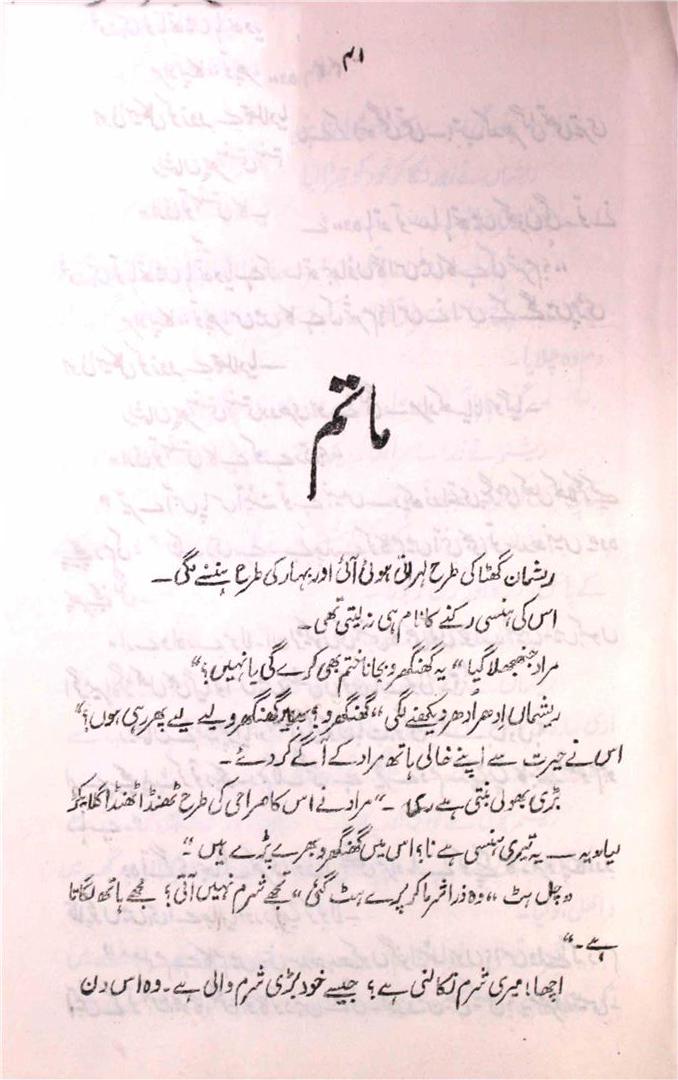 ۴۱
ماتم
ریشماں گھٹا کی طرح لہراتی ہوئی آئی اور بہار کی طرح ہنسنے لگی۔
اس کی ہنسی رکنے کا نام ہی نہ لیتی تھی۔
مراد جھنجھلا گیا "یہ گھنگھرو بجانا ختم بھی کرے گی یا نہیں؟"
ریشماں اِدھر اُدھر دیکھنے لگی "گھنگھرو؟ میں گھنگھرو لیے لیے پھر رہی ہوں؟"
اس نے حیرت سے اپنے خالی ہاتھ مراد کے آگے کر دئے۔
بڑی بھولی بنتی ہے ری۔" مراد نے اس کا صراحی کی طرح ٹھنڈا ٹھنڈا گلا پکڑ
لیا۔ یہ — یہ تیری ہنسی ہے نا؟ اس میں گھنگھرو بھرے پڑے ہیں"۔
"چل ہٹ" وہ ذرا شرما کر پرے ہٹ گئی "تجھے شرم نہیں آتی؟ مجھے ہاتھ لگاتا
ہے۔"
اچھا! میری شرم نکالتی ہے؟ جیسے خود بڑی شرم والی ہے۔ وہ اس دن